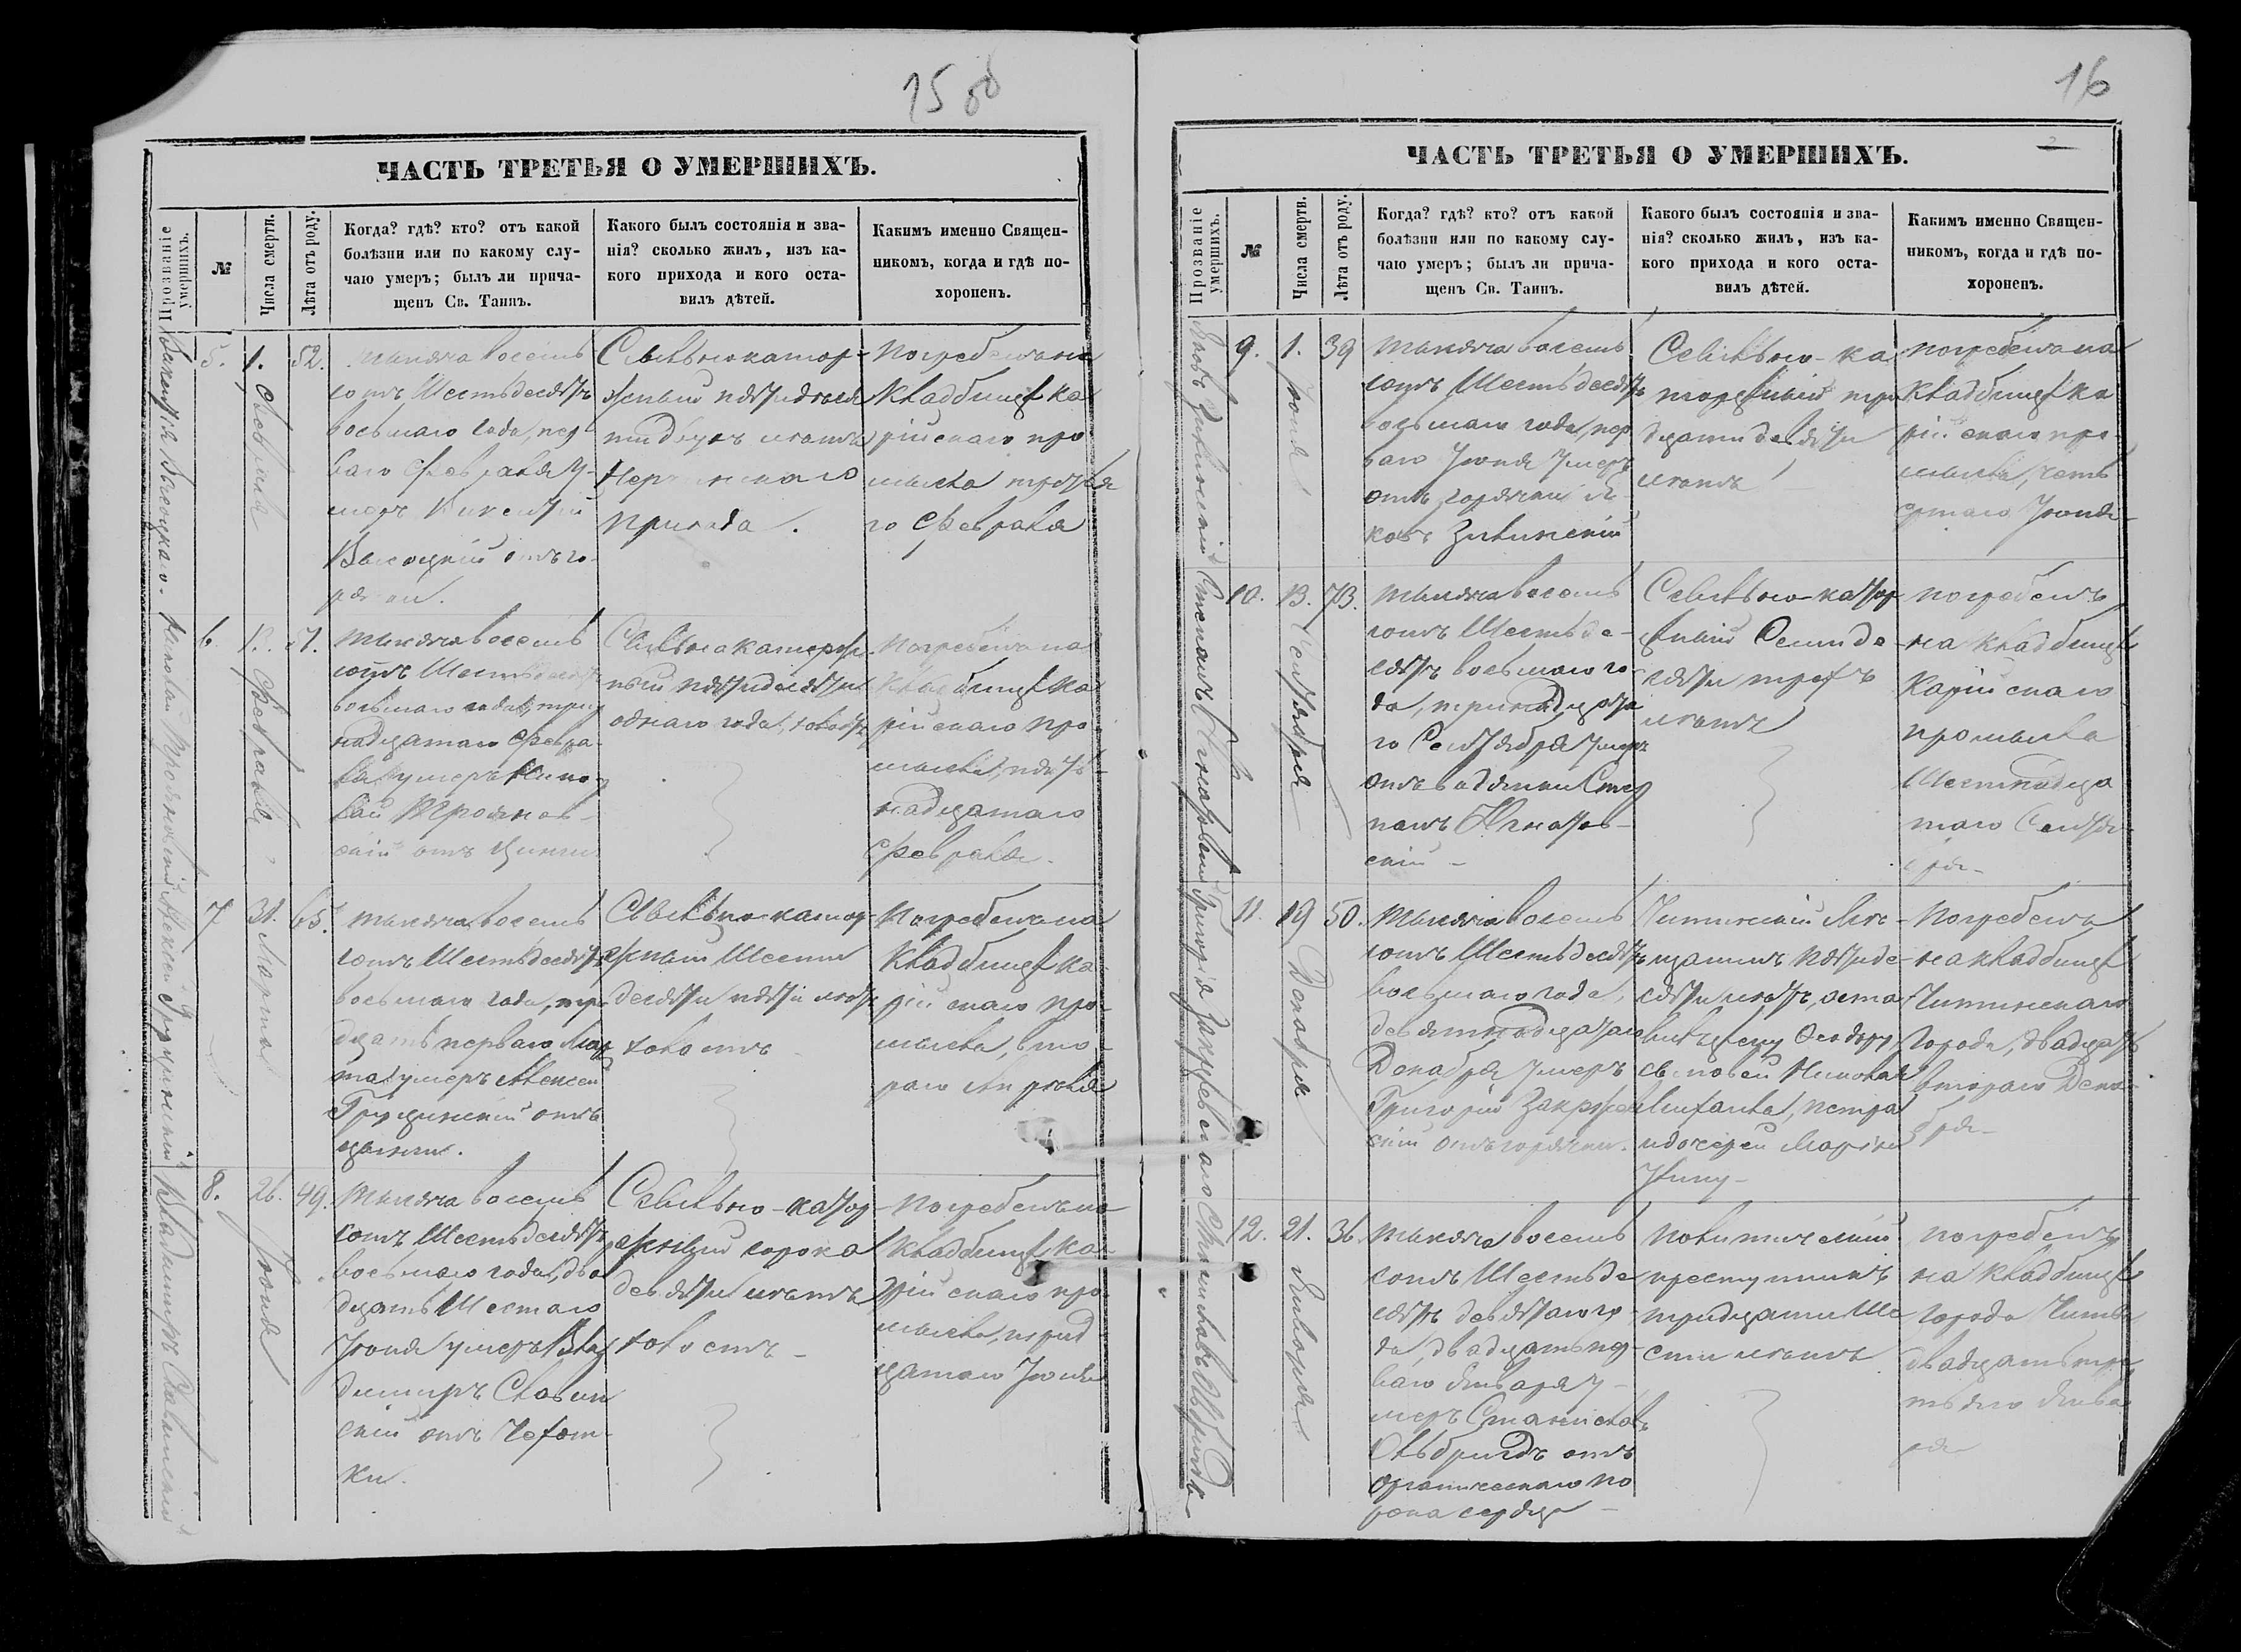 15 об
ЧАСТЬ ТРЕТЬЯ О УМЕРШИХЪ.
Прозваніе умершихъ.
№
Числа смерти.
Лѣта отъ роду.
Когда? гдѣ? кто? отъ какой
болѣзни или по какому слу-
чаю умеръ; былъ ли прича-
щенъ Св. Таинъ.
Какого былъ состоянія и зва-
нія? сколько жилъ, изъ ка-
кого прихода и кого оста-
вилъ дѣтей.
Какимъ именно Священ-
никомъ, когда и гдѣ по-
хороненъ.
Викентія Высоцкаго.
5.
1. Февраля
52.
тысяча восемь
сотъ шестьдесятъ
восьмаго года, пер
ваго Февраля у-
меръ Викентій
Высоцкій отъ го-
рячки.
Ссыльнокатор-
жный пятидеся
ти двухъ лѣтъ
Нерчинскаго
прихода.
Погребенъ на
кладбищѣ Ка
рійскаго про
мысла третья
го Февраля
6.
13. Февраля
51.
тысяча восемь
сотъ шестьдесятъ
восьмаго года, три
надцатаго Февра-
ля умеръ Нико-
лай Трояно́в-
скій отъ цынги
Ссыльнокаторж-
ный пятидесяти
однаго года, холостъ
Погребенъ на
кладбищѣ Ка
рійскаго про
мысла, пят-
надцатаго
Февраля.
Алексѣй Грущинскій
7
31. Марта
65.
тысяча восемь
сотъ шестьдесятъ
восьмаго года, три
дцать перваго Мар
та умеръ Алексѣй
Грущинскій отъ
цынги.
Ссыльно-катор-
жный шести
десяти пяти лѣтъ
холостъ
Погребенъ на
кладбищѣ Ка-
рійскаго про-
мысла, вто-
раго Апрѣля
Владимиръ Славинскій
8.
26. Іюня
49.
тысяча восемь
сотъ шестьдесятъ
восьмаго года, два
дцать шестаго
Іюня умеръ Вла
димиръ Славин
скій отъ чахот-
ки.
Ссыльно-катор-
жный сорока
девяти лѣтъ
холостъ
Погребенъ на
кладбищѣ Ка-
рійскаго про-
мысла, трид
цатаго Іюня
16
ЧАСТЬ ТРЕТЬЯ О УМЕРШИХЪ.
2
Прозваніе умершихъ.
№
Числа смерти.
Лѣта отъ роду.
Когда? гдѣ? кто? отъ какой
болѣзни или по какому слу-
чаю умеръ; былъ ли прича-
щенъ Св. Таинъ.
Какого былъ состоянія и зва-
нія? сколько жилъ, изъ ка-
кого прихода и кого оста-
вилъ дѣтей.
Какимъ именно Священ-
никомъ, когда и гдѣ по-
хороненъ.
9.
1. Іюня
39
тысяча восемь
сотъ шестьдесятъ
восьмаго года, пер
ваго Іюня умеръ
отъ горячки Я-
ковъ
Ссыльно-ка
торжный три
дцати девяти
лѣтъ
погребенъ на
кладбищѣ Ка
рійскаго про-
мысла, четь
ертаго Іюня
10.
13. Сентября
73.
тысяча восемь
сотъ шестьде-
сятъ восьмаго го-
да, тринадцата
го Сентября умеръ
отъ водянки Сте
панъ Игнатов-
скій
Ссыльно-катор
жный семиде
сяти трехъ
лѣтъ
погребенъ
на кладбищѣ
Карійскаго
промысла
шестнадца
таго Сентя-
бря
Григорія Закржевскаго
11.
19 Декабря
50.
тысяча восемь
сотъ шестьдесятъ
восьмаго года,
девятнадцатаго
Декабря умеръ
Григорій Закржев
скій отъ горячки.
Читинскій Мѣ-
щанинъ пятиде-
сяти лѣтъ, оста
вилъ жену Феодору
сыновей Николая
Петра
и дочерей Марію
Погребенъ
на кладбищѣ
Читинскаго
города, двадцать
втораго Дека-
бря
12.
21. Января
36
тысяча восемь
сотъ шестьде
сятъ девятаго го
да, двадцать пер-
ваго Января у-
меръ Станиславъ
Ольбрихтъ отъ
органическаго по
рока сердца
политическій
преступникъ
тридцати ше
сти лѣтъ
погребенъ
на кладбищѣ
города Читы
двадцать тре
тьяго Янва
ря